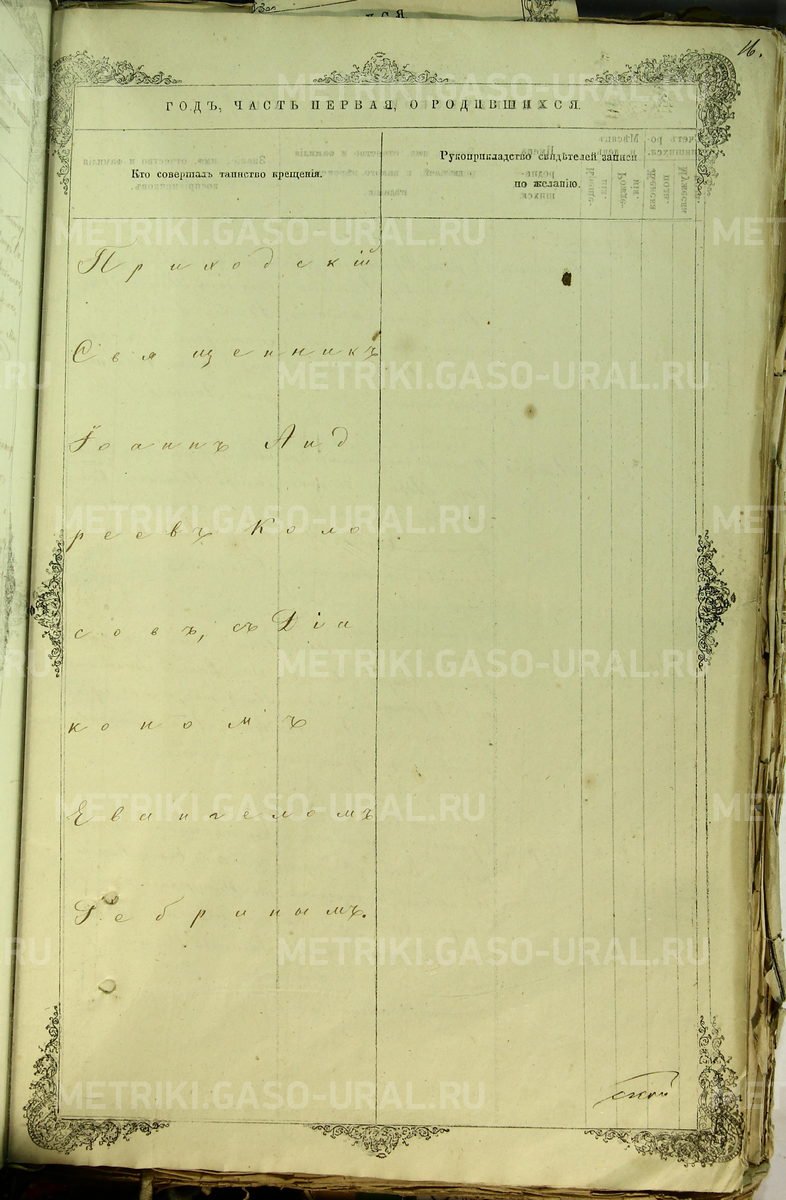 16.
ГОДЪ, ЧАСТЬ ПЕРВАЯ, О РОДИВШИХСЯ.
Кто совершалъ таинство крещенія.
Рукоприкладство свидѣтелей записи
по желанію.
Приходскій
Священникъ
Іоаннъ Анд
реевъ Коло
совъ, съ Діа
кономъ
Евангеломъ
бринымъ.
ской
METRIKI.GASO-URAL.RU